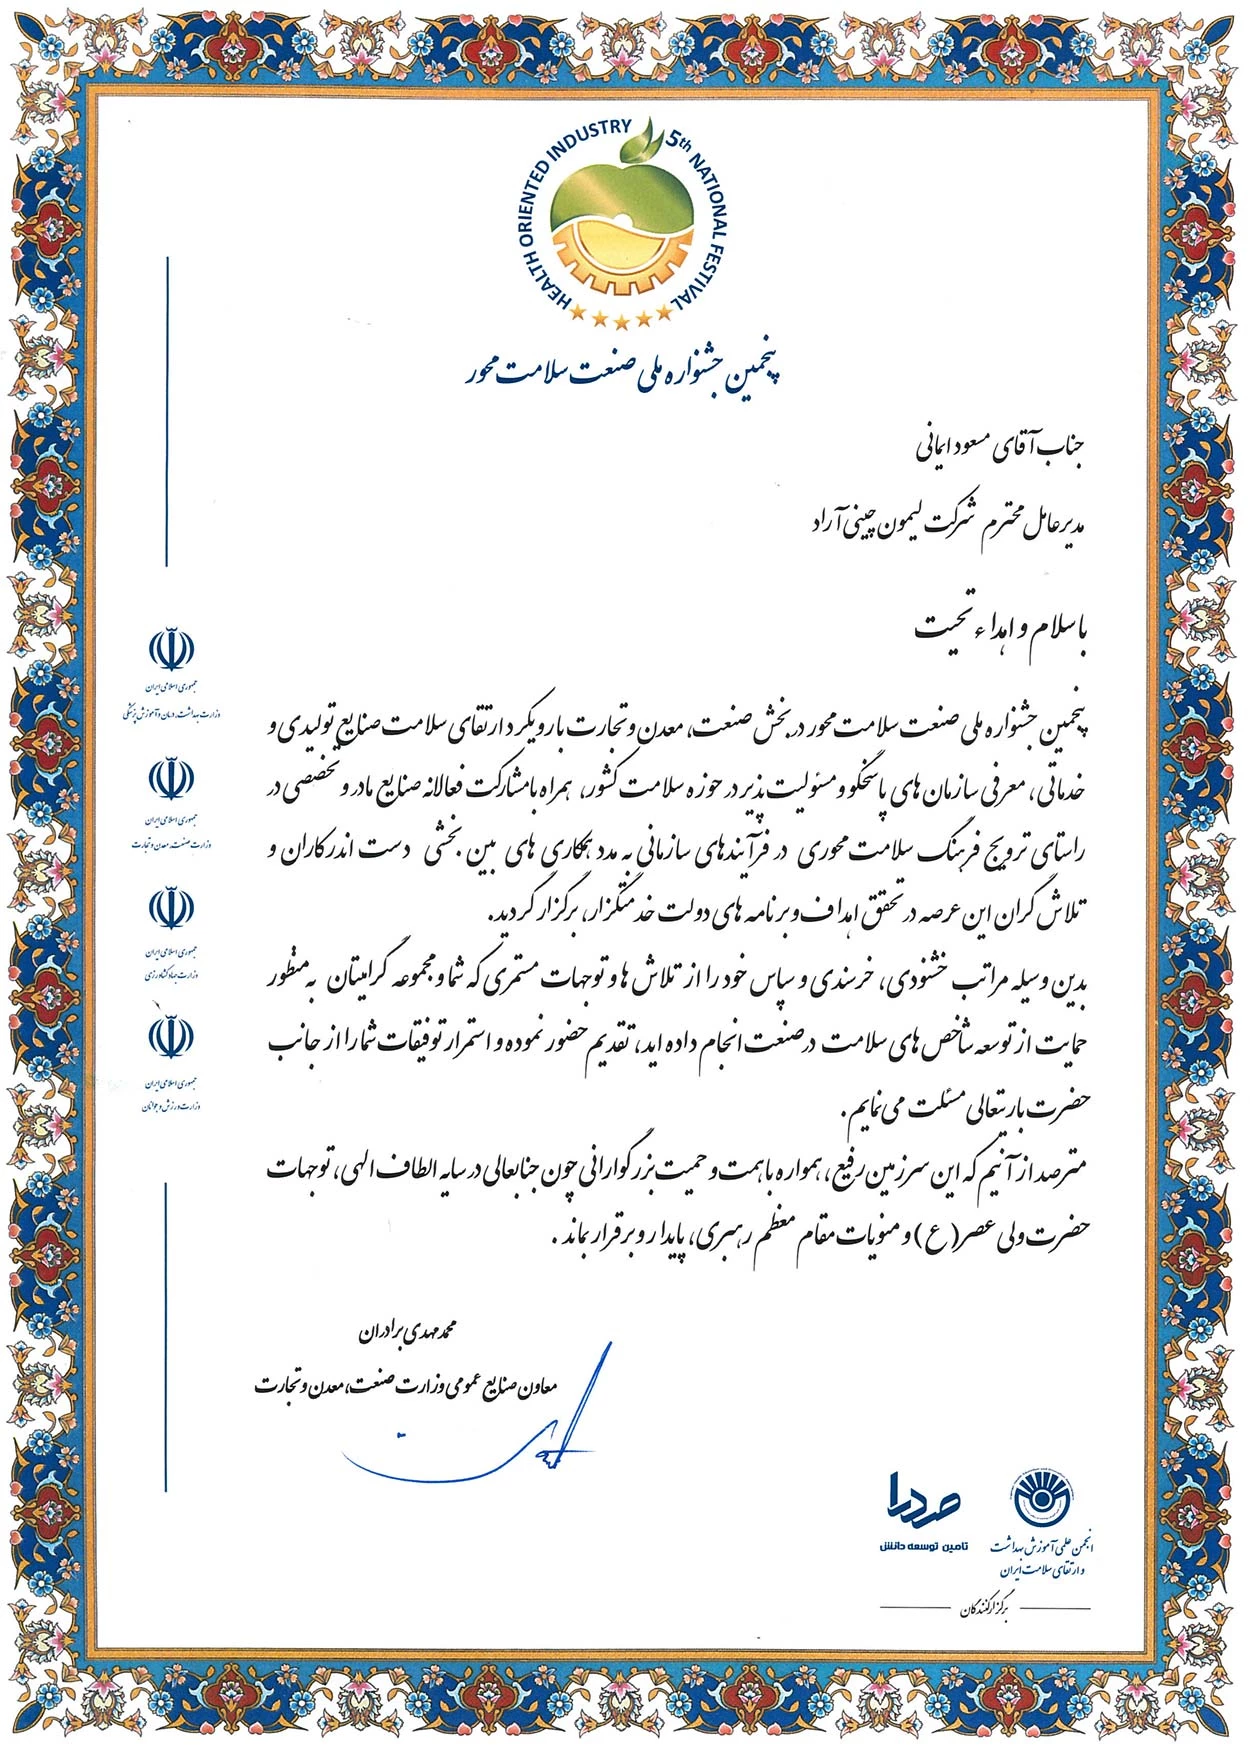 HEALTH ORIENTED INDUSTRY 5th NATIONAL FESTIVAL
پنجمین جشنواره ملی صنعت سلامت محور
جناب آقای مسعود ایمانی
مدیرعامل محترم شرکت لیمون چینی آراد
با سلام و اهداء تحیت
پنجمین جشنواره ملی صنعت سلامت محور در بخش صنعت، معدن و تجارت با رویکرد ارتقای سلامت صنایع تولیدی و
خدماتی، معرفی سازمان های پاسخگو و مسئولیت پذیر در حوزه سلامت کشور، همراه با مشارکت فعالانه صنایع مادر و تخصصی در
راستای ترویج فرهنگ سلامت محوری در فرآیندهای سازمانی به مدد همکاری های بین بخشی دست اندرکاران و
تلاش گران این عرصه در تحقق اهداف و برنامه های دولت خدمتگزار، برگزار گردید.
بدین وسیله مراتب خشنودی، خرسندی و سپاس خود را از تلاش ها و توجهات مستمری که شما و مجموعه گرامیتان به منظور
حمایت از توسعه شاخص های سلامت در صنعت انجام داده اید، تقدیم حضور نموده و استمرار توفیقات شما را از جانب
حضرت باریتعالی مسئلت می نمایم.
مترصد از آنیم که این سرزمین رفیع، همواره با همت و حمیت بزرگوارانی چون جنابعالی در سایه الطاف الهی، توجهات
حضرت ولی عصر(ع) و منویات مقام معظم رهبری، پایدار و برقرار بماند.
محمدمهدی برادران
معاون صنایع عمومی وزارت صنعت، معدن و تجارت
جمهوری اسلامی ایران
وزارت بهداشت، درمان و آموزش پزشکی
جمهوری اسلامی ایران
وزارت صنعت، معدن و تجارت
جمهوری اسلامی ایران
وزارت جهاد کشاورزی
جمهوری اسلامی ایران
وزارت ورزش و جوانان
انجمن علمی آموزش بهداشت
و ارتقای سلامت ایران
تامین توسعه دانش
برگزارکنندگان